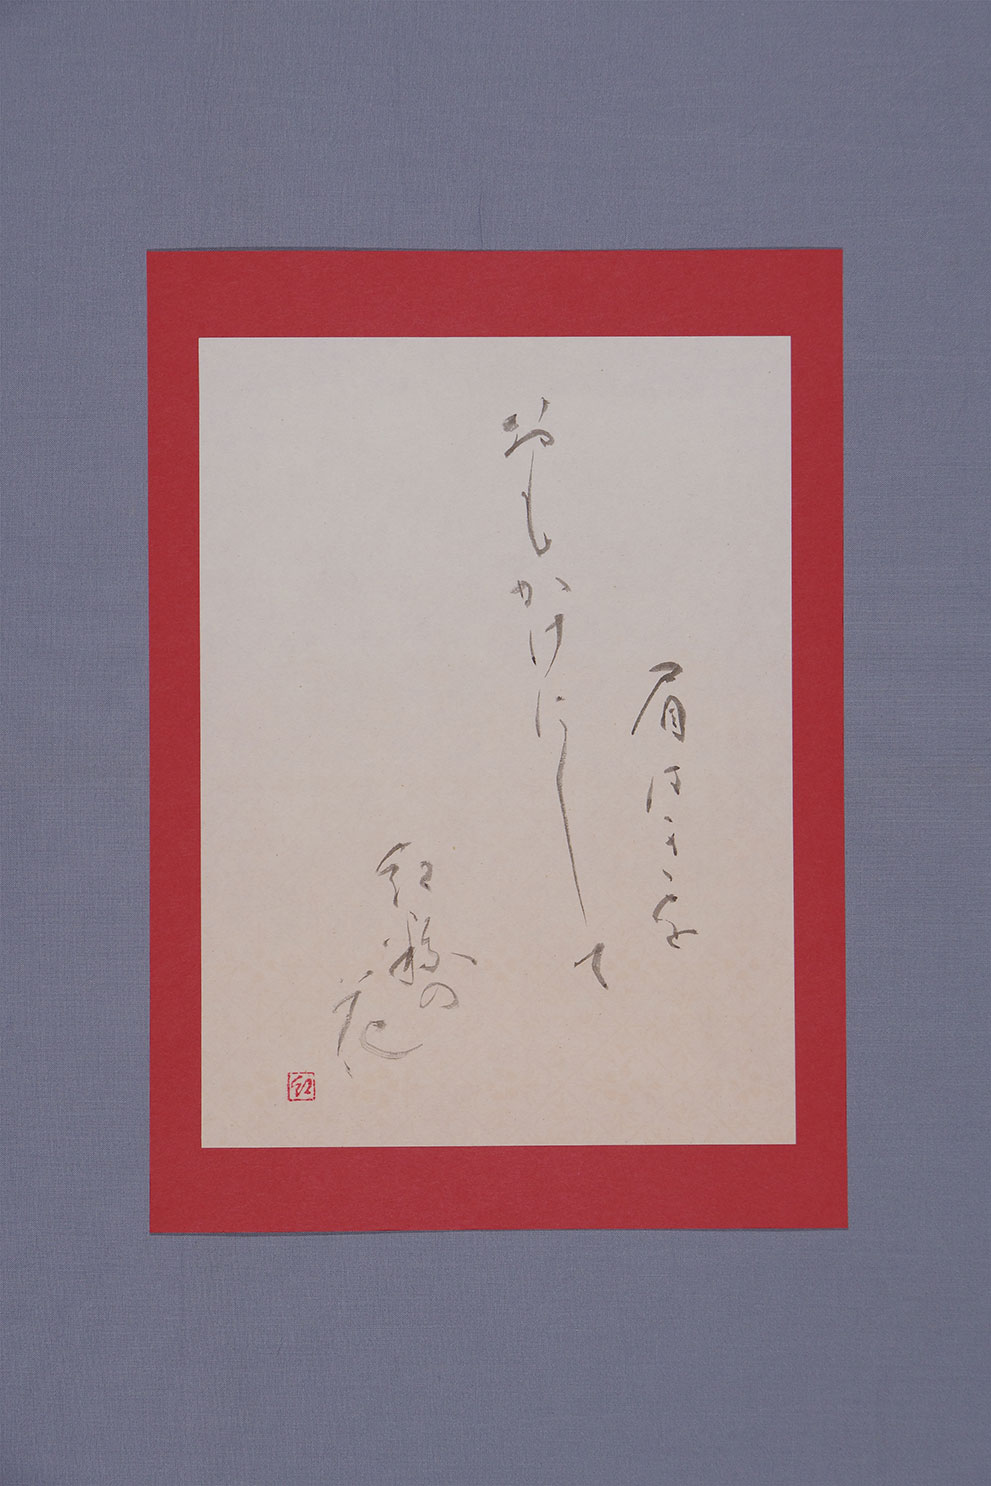 眉はきを
おもかけにして
紅粉の
花